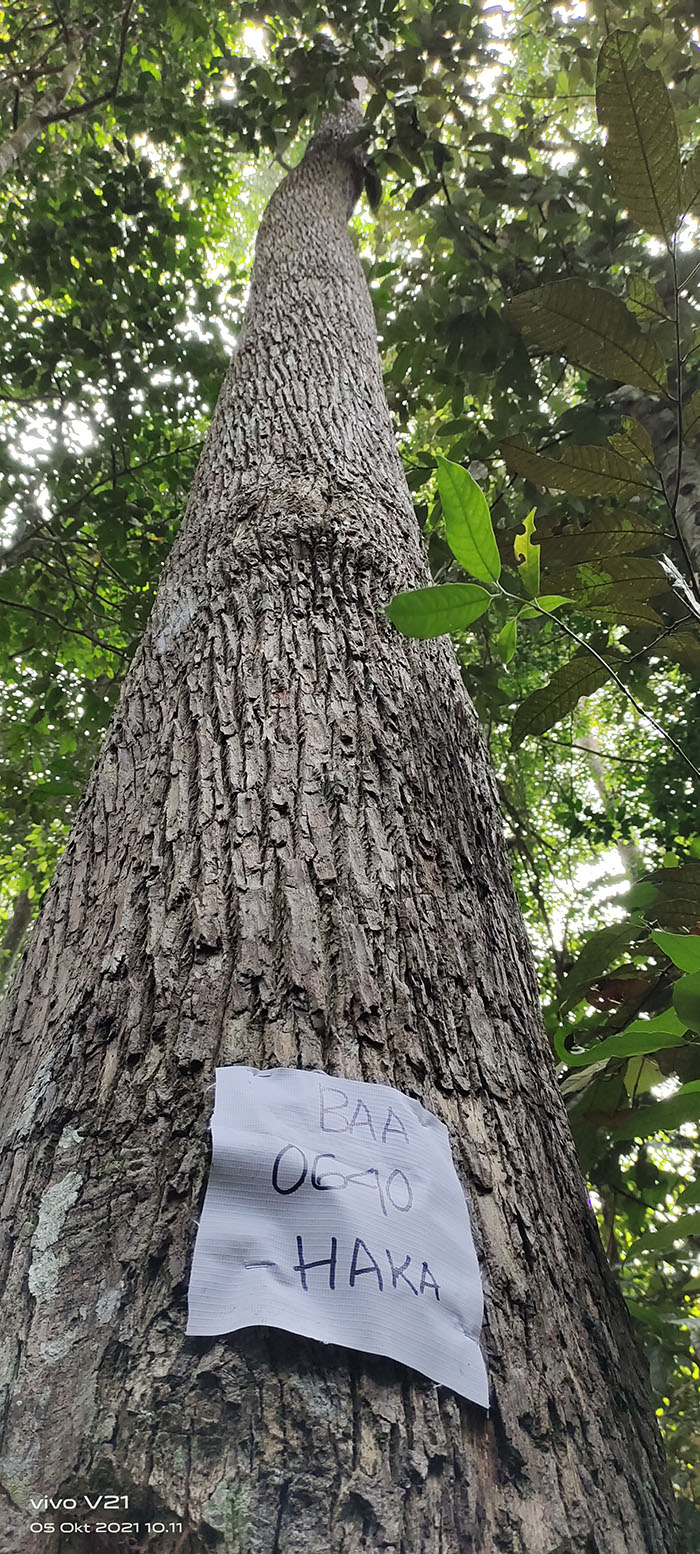 BAA
0690
- HAKA
vivo V21
05 Okt 2021 10.11